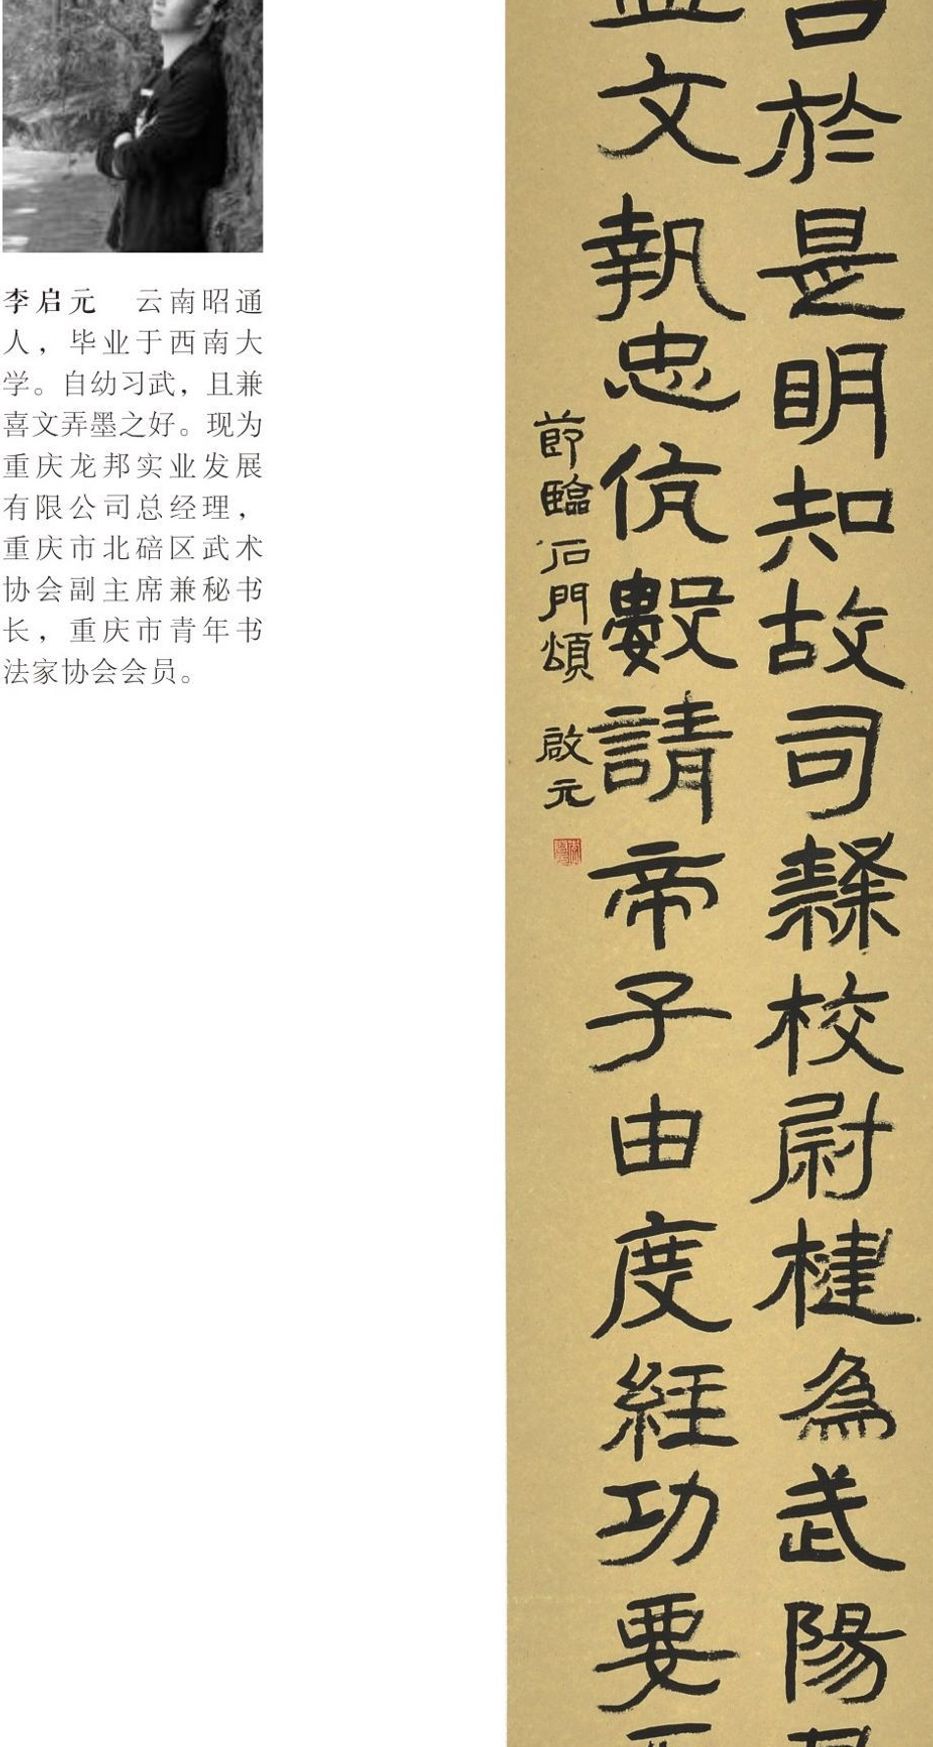 李启元 云南昭通
人，毕业于西南大
学。自幼习武，且兼
喜文弄墨之好。现为
重庆龙邦实业发展
有限公司总经理，
重庆市北碚区武术
协会副主席兼秘书
长，重庆市青年书
法家协会会员。
於是明知故司隸校尉楗為武陽
文執忠伉數請帝子由度經功要
節臨石門頌 啟元